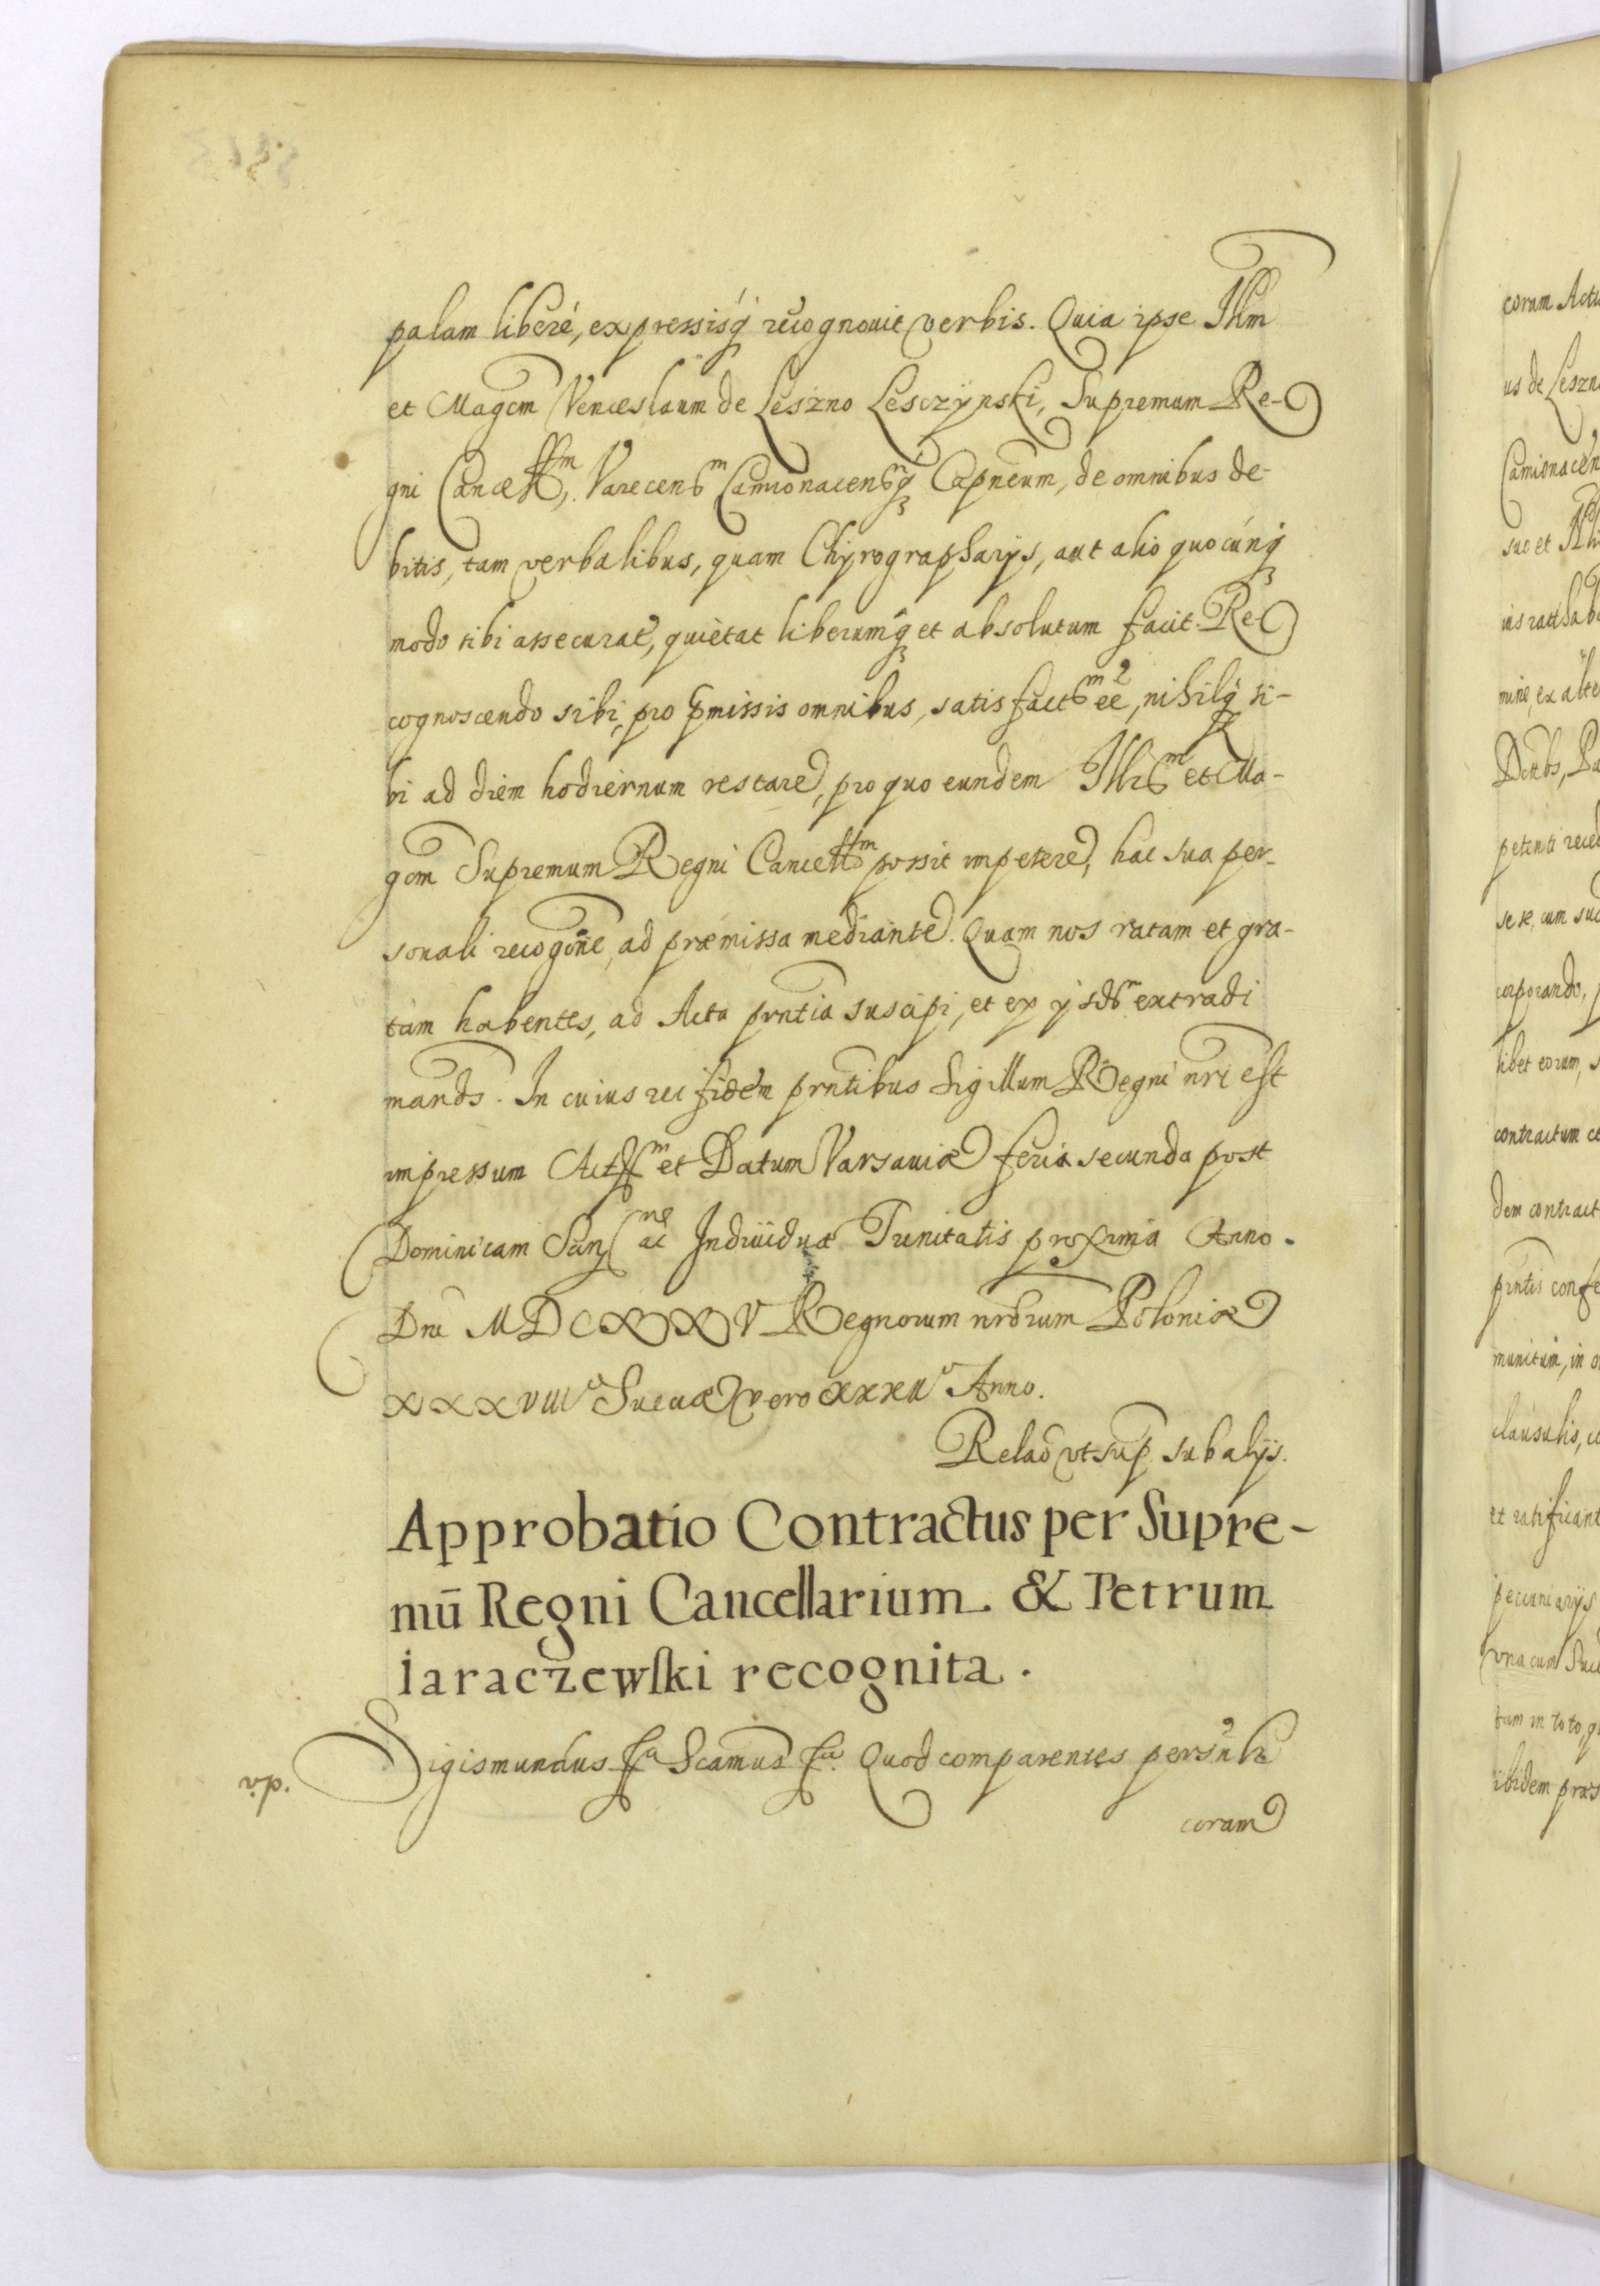 palam liberè, expressisq́ recognouit verbis. Quia ipse Illm̄
et Magcm̄ Venceslaum de Leszno Lesczÿnski, Supremum Re-
gni Cancellm, Varecensm Camionacensq́ Capneum, de omnibus de-
bitis, tam verbalibus, quam Chyrographarijs, aut alio quocúnq́
modo sibi assecurat̃, quiètat liberumq́ et absolutum facit Re
cognoscendo sibi, pro p̄missis omnibus, satis factm eē, nihilq́ si-
bi ad diem hodiernum restare, pro quo eundem Illrm et Ma-
gcm̄ Supremum Regni Cancellm possit impetere, hac sua per-
sonali recogōne, ad præmissa mediante. Quam nos ratam et gra-
tam habentes, ad Acta prntia suscipi, et ex ijsdm extradi
mands. In cuius rei fidem prntibus Sigillum Regni nri est
impressum Actm et Datum Varsauiæ feria secunda post
Dominicam San ac Indiuiduæ Trinitatis proxima Anno.
Dni MDCXXV Regnorum nrorum Poloniæ
XXXVIIIo Sueciæ vero XXXIIo Anno.
Relaō vt sup̄ sub alijs.
Approbatio Contractus per Supre-
mū Regni Cancellarium & Petrum
iaraczewski recognita.
Sigismundus &a Scamus &a. Quod comparentes persnlr
coram
coram Actu
us de Leszn
Camionacen
suo et Illr
ius ratihab
mine, ex alte
petenti reced
se se, cum suc
corporando,
libet eorum, s
contractum et
dem contract
prntis confe
munitum, in o
clausulis, co
et ratificant
pecuniarijs
vna cum Succ
tum in toto, q
ibidem præs